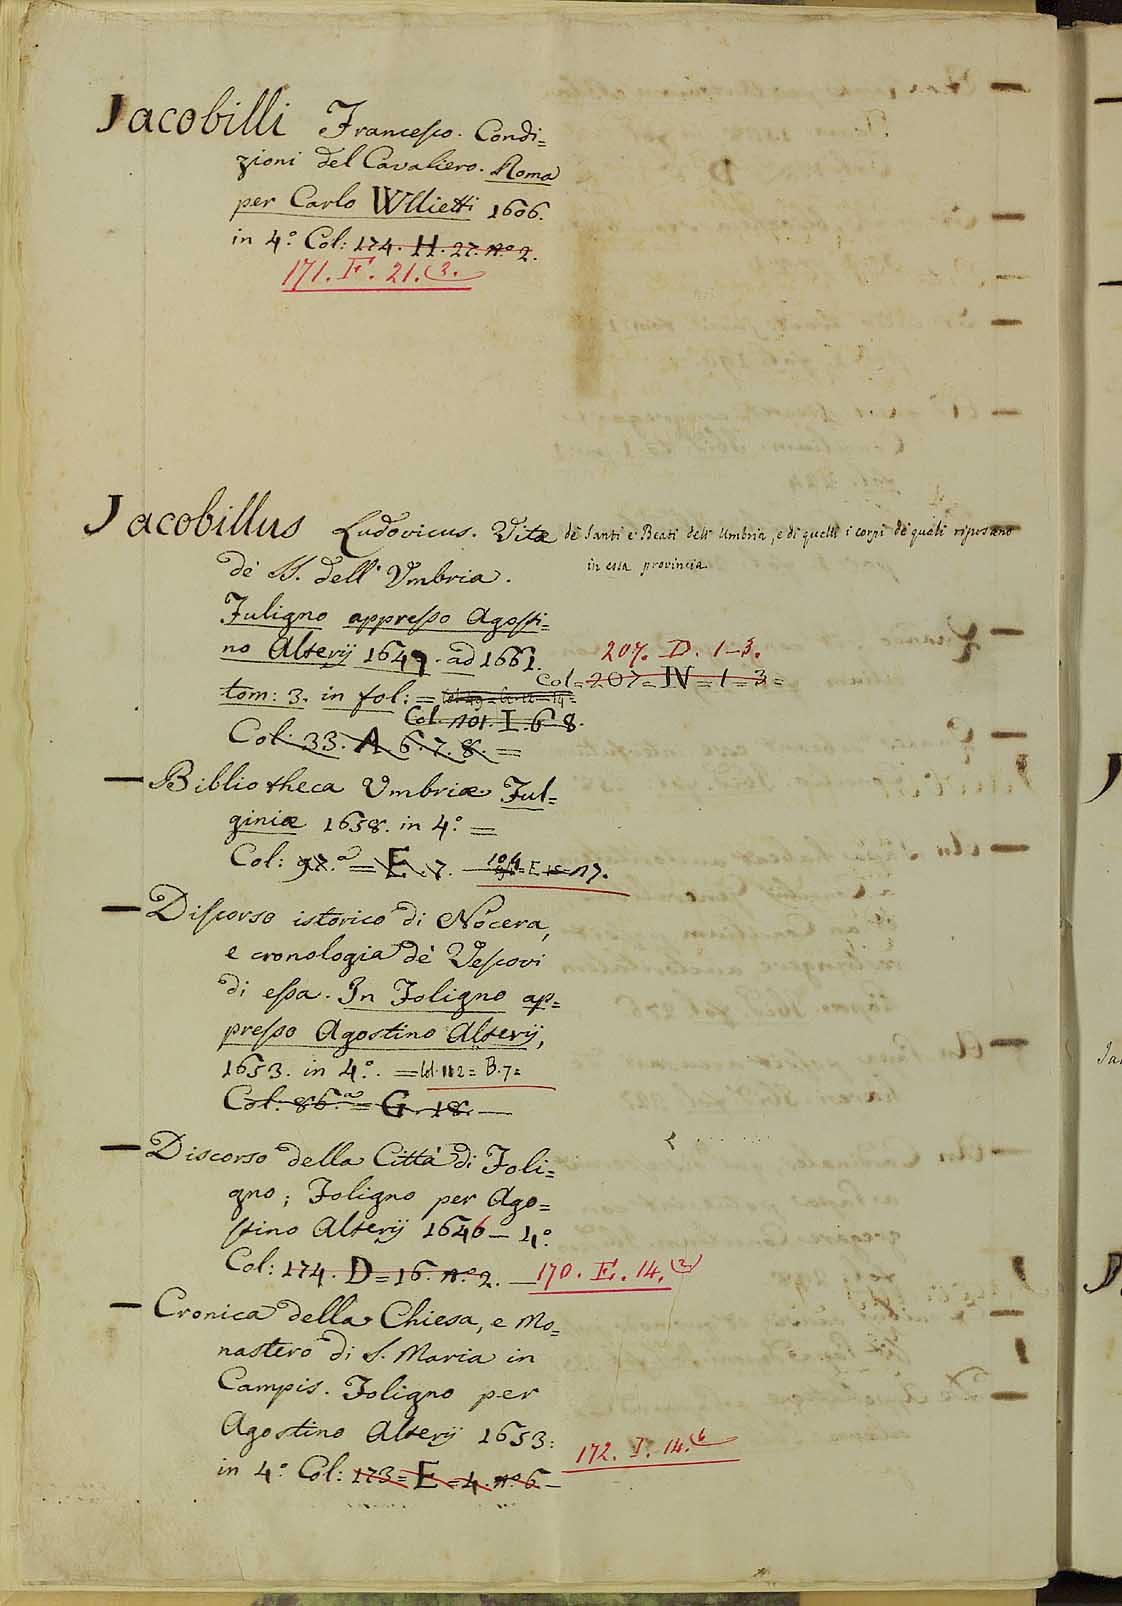 Jacobilli Francesco. Condi=
zioni del Cavaliero. Roma
per Carlo Wllietti 1606.
in 4.° Col: 174. H. 27. n.° 2.
171. F. 21. (3.
Jacobillus Ludovicus. Vitæ de' Santi e Beati dell' Umbria, e di quelli i corpi de' quali riposano
in essa provincia
de' SS. dell' Umbria.
Fuligno appresso Agosti=
no Alterij 1647. ad 1661.
207. D. 1-3.
Col=207=IV=1=3=
tom: 3. in fol: =
Col. 101. I. 6 8.
Col: 33. A 6. 7. 8. =
— Bibliotheca Umbriæ Ful=
giniæ 1658. in 4.° =
Col: 97.a = E. 7. — 104 = E 17.
— Discorso istorico di Nocera,
e cronologia de' Vescovi
di essa. In Foligno ap=
presso Agostino Alterij,
1653. in 4.° = Col. 112 = B. 7 =
Col. 86.a = G. 18. —
— Discorso della Città di Foli=
gno; Foligno per Ago=
stino Alterij 1646 — 4.°
Col: 174. D = 16. n.° 2. — 170. E. 14. (2)
— Cronica della Chiesa, e Mo=
nastero di S. Maria in
Campis. Foligno per
Agostino Alterij 1653:
172. I. 14. 6
in 4.° Col: 173 = E = 4. n.° 6 —